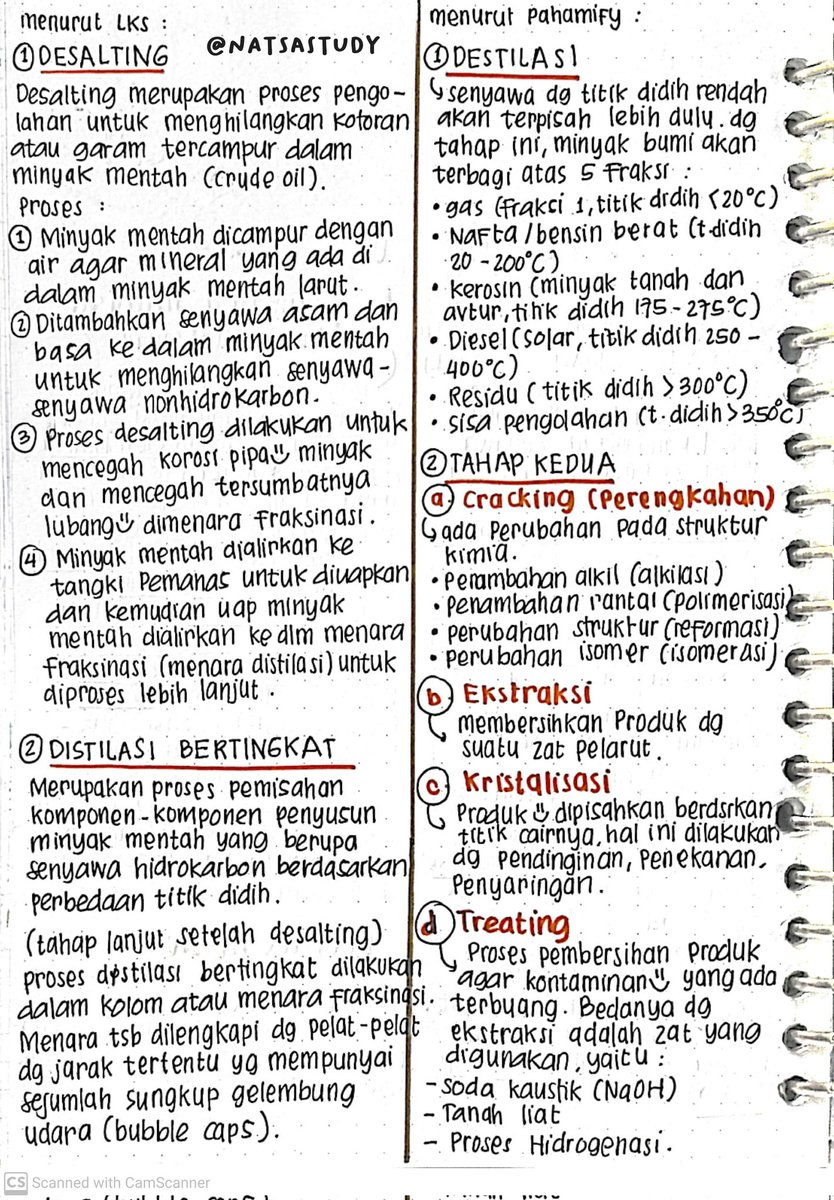 menurut LKS :
@NATSASTUDY
① DESALTING
Desalting merupakan proses pengo-
lahan untuk menghilangkan kotoran
atau garam tercampur dalam
minyak mentah (crude oil).
Proses :
① Minyak mentah dicampur dengan
air agar mineral yang ada di
dalam minyak mentah larut.
② Ditambahkan senyawa asam dan
basa ke dalam minyak mentah
untuk menghilangkan senyawa-
senyawa nonhidrokarbon.
③ Proses desalting dilakukan untuk
mencegah korosi pipa minyak
dan mencegah tersumbatnya
lubang dimenara fraksinasi.
④ Minyak mentah dialirkan ke
tangki pemanas untuk diuapkan
dan kemudian uap minyak
mentah dialirkan ke dlm menara
fraksinasi (menara distilasi) untuk
diproses lebih lanjut.
② DISTILASI BERTINGKAT
Merupakan proses pemisahan
komponen-komponen penyusun
minyak mentah yang berupa
senyawa hidrokarbon berdasarkan
perbedaan titik didih.
(tahap lanjut setelah desalting)
proses distilasi bertingkat dilakukan
dalam kolom atau menara fraksinasi.
Menara tsb dilengkapi dg pelat-pelat
dg jarak tertentu yg mempunyai
sejumlah sungkup gelembung
udara (bubble caps).
menurut Pahamify :
① DESTILASI
senyawa dg titik didih rendah
akan terpisah lebih dulu. dg
tahap ini, minyak bumi akan
terbagi atas 5 fraksi :
• gas (fraksi 1, titik didih <20°C)
• Nafta/bensin berat (t.didih
20-200°C)
• kerosin (minyak tanah dan
avtur, titik didih 175-275°C)
• Diesel (solar, titik didih 250-
400°C)
• Residu (titik didih >300°C)
• sisa pengolahan (t.didih >350°C)
② TAHAP KEDUA
a) Cracking (Perengkahan)
ada perubahan pada struktur
kimia.
• penambahan alkil (alkilasi)
• penambahan rantai (polimerisasi)
• perubahan struktur (reformasi)
• perubahan isomer (isomerasi)
b) Ekstraksi
membersihkan produk dg
suatu zat pelarut.
c) Kristalisasi
Produk dipisahkan berdsrkan
titik cairnya, hal ini dilakukan
dg pendinginan, penekanan,
penyaringan.
d) Treating
Proses pembersihan produk
agar kontaminan yang ada
terbuang. Bedanya dg
ekstraksi adalah zat yang
digunakan, yaitu :
- Soda kaustik (NaOH)
- Tanah liat
- Proses Hidrogenasi.
CS Scanned with CamScanner